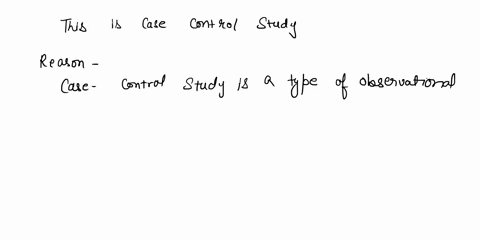 This is Case Control Study
Reason -
Case- Control Study is a type of observational